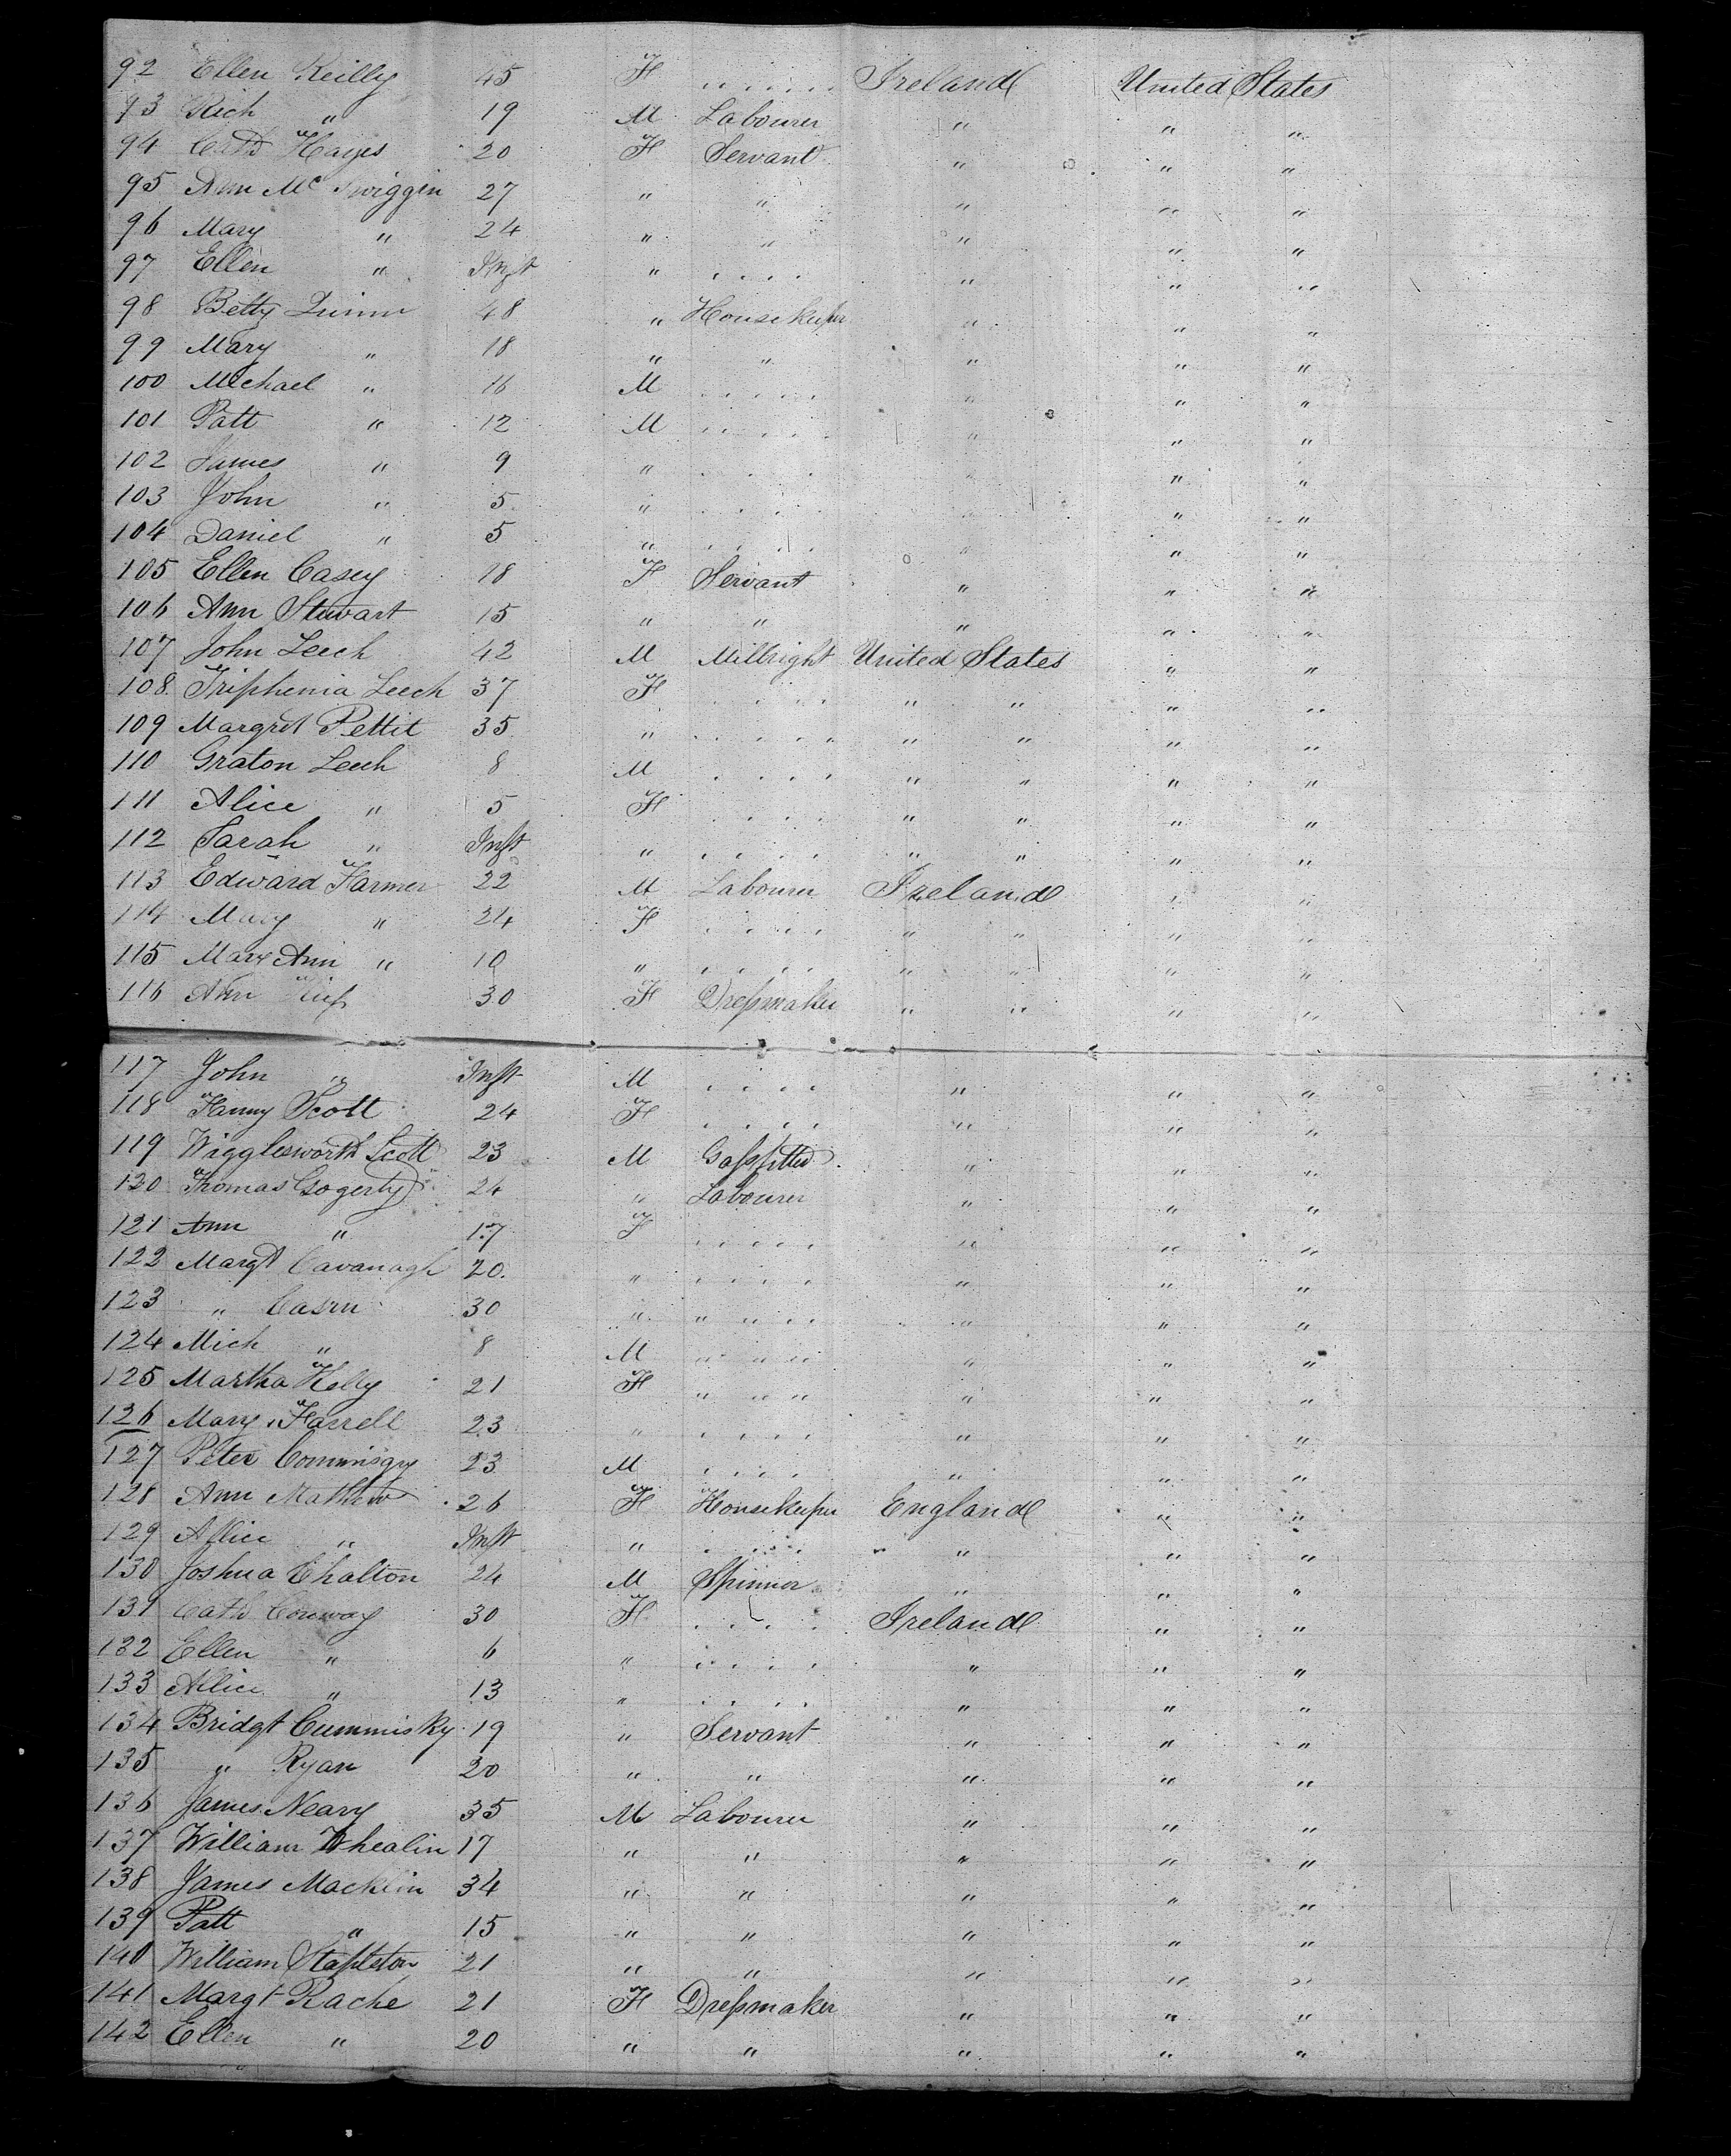 92 Ellen Reilly 45 F . . . . . . Ireland United States
93 Rich " 19 M Labourer " " "
94 Cath Hayes 20 F Servant " " "
95 Ann Mc Swiggin 27 " " " " "
96 Mary " 24 " " " " "
97 Ellen " Inft " . . . . " " "
98 Betty Quinn 48 " Housekeeper " " "
99 Mary " 18 " " " " "
100 Michael " 16 M . . . . . " " "
101 Patt " 12 M . . . . . " " "
102 James " 9 " . . . . " " "
103 John " 5 " . . . . " " "
104 Daniel " 5 " . . . . " " "
105 Ellen Casey 18 F Servant " " "
106 Ann Stewart 15 " " " " "
107 John Leech 42 M Millright United States " "
108 Triphenia Leech 37 F . . . . . " " " "
109 Margret Pettit 35 " . . . . . " " " "
110 Graton Leech 8 M . . . . " " " "
111 Alice " 5 F . . . . " " " "
112 Sarah " Inft " . . . . " " " "
113 Edward Farmer 22 M Labourer Ireland " "
114 Mary " 24 F . . . . " " " "
115 Mary Ann " 10 " . . . . " " " "
116 Ann 30 F Dressmaker " " " "
117 John " Inft M . . . . " " "
118 Fanny Scott 24 F . . . . " " "
119 Wigglesworth Scott 23 M Gassfitter " " "
120 Thomas Gogerty 24 " Labourer " " "
121 Ann " 17 F . . . . . " " "
122 Margt Cavanagh 20 " . . . . " " "
123 " Casrn 30 " " " " " " " "
124 Mich " 8 M " " " " " " "
125 Martha Kelly 21 F " " " " " " "
126 Mary Farrell 23 " . . . . " " "
127 Peter Commisgy 23 M . . . . " " "
128 Ann Mathew 26 F Housekeeper England " "
129 Allice " Inft " . . . . " " "
130 Joshua Chalton 24 M Spinner " " "
131 Cath Conway 30 F . . . . Ireland " "
132 Ellen " 6 " . . . . " " "
133 Allice " 13 " . . . . " " "
134 Bridgt Cummisky 19 " Servant " " "
135 " Ryan 20 " " " " "
136 James Neary 35 M Labourer " " "
137 William Whealin 17 " " " " "
138 James Macklin 34 " " " " "
139 Patt " 15 " " " " "
140 William Stapleton 21 " " " " "
141 Margt Rache 21 F Dressmaker " " "
142 Ellen " 20 " " " " "